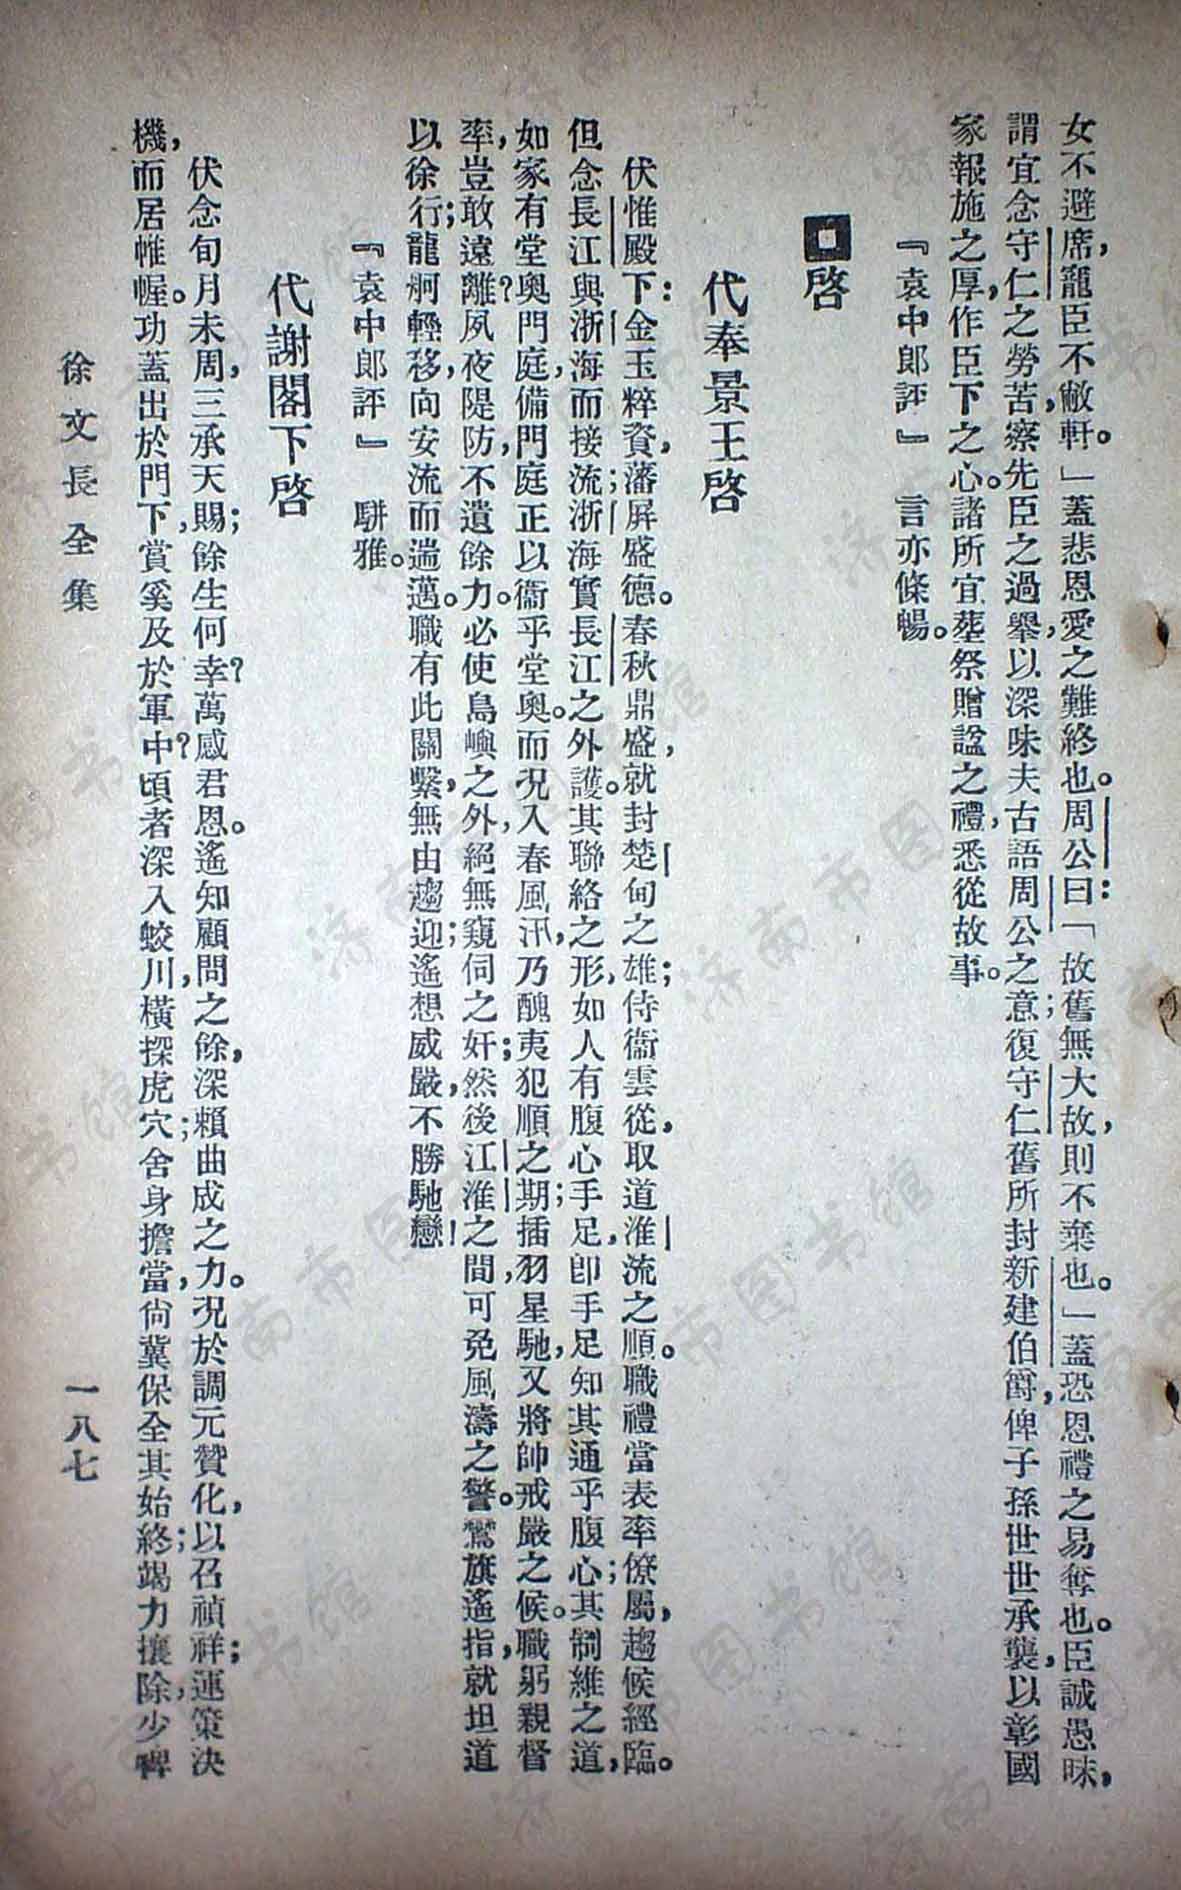 女不避席，寵臣不敝軒。」蓋悲恩愛之難終也。周公曰：「故舊無大故，則不棄也。」蓋恐恩禮之易奪也。臣誠愚昧，
謂宜念守仁之勞苦，察先臣之過舉，以深味夫古語周公之意；復守仁舊所封新建伯爵，俾子孫世世承襲，以彰國
家報施之厚，作臣下之心。諸所宜葬祭贈諡之禮，悉從故事。
『袁中郎評』 言亦條暢。
啓
代奉景王啓
伏惟殿下：金玉粹資，藩屏盛德。春秋鼎盛，就封楚甸之雄；侍衞雲從，取道淮流之順。職禮當表率僚屬，趨候經臨。
但念長江與浙海而接流；浙海實長江之外護。其聯絡之形，如人有腹心手足，卽手足知其通乎腹心；其制維之道，
如家有堂奧門庭，備門庭正以衞乎堂奧。而況入春風汛，乃醜夷犯順之期；插羽星馳，又將帥戒嚴之候。職躬親督
率，豈敢遠離？夙夜隄防，不遺餘力。必使島嶼之外，絕無窺伺之奸；然後江淮之間，可免風濤之警。鷺旗遙指，就坦道
以徐行；龍舸輕移，向安流而遄邁。職有此關繫，無由趨迎；遙想威嚴，不勝馳戀！
『袁中郎評』 駢雅。
代謝閣下啓
伏念旬月未周，三承天賜；餘生何幸？萬感君恩。遙知顧問之餘，深賴曲成之力。況於調元贊化，以召禎祥；運策決
機，而居帷幄。功蓋出於門下，賞奚及於軍中？頃者深入蛟川，橫探虎穴；舍身擔當，尙冀保全其始終；竭力攘除，少裨
徐文長全集
一八七
济南市图书馆